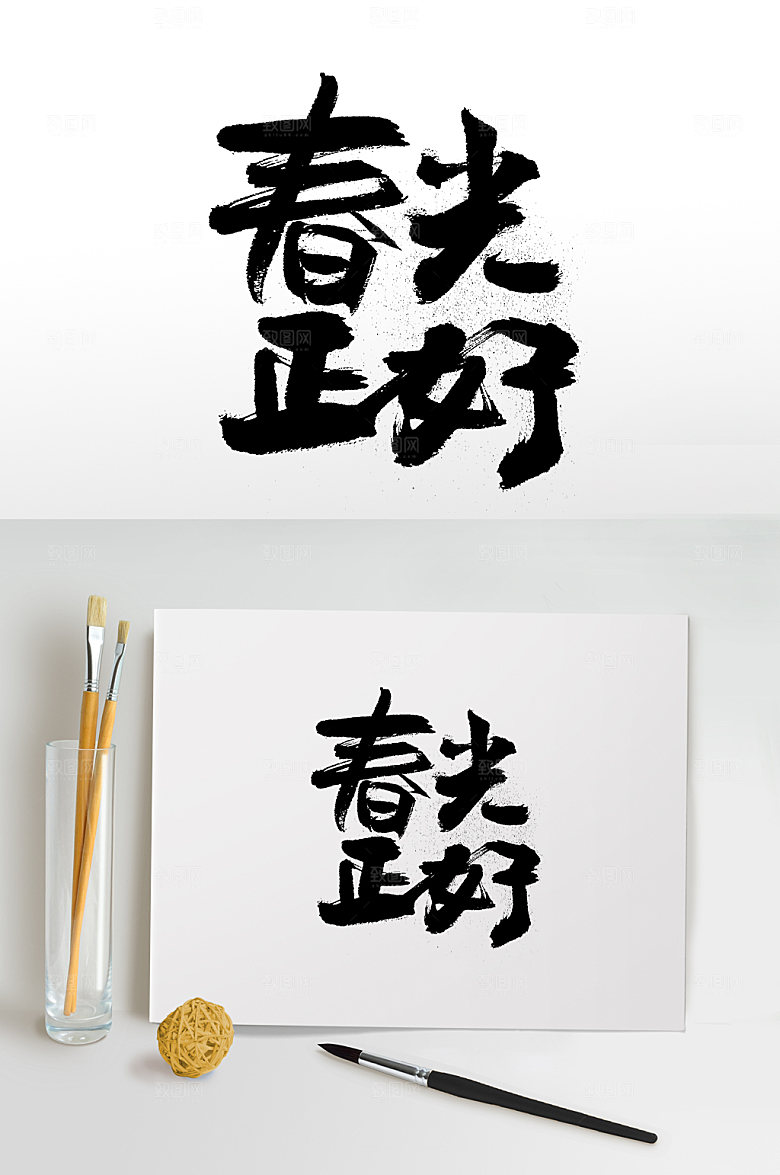 春光
正好
春光
正好